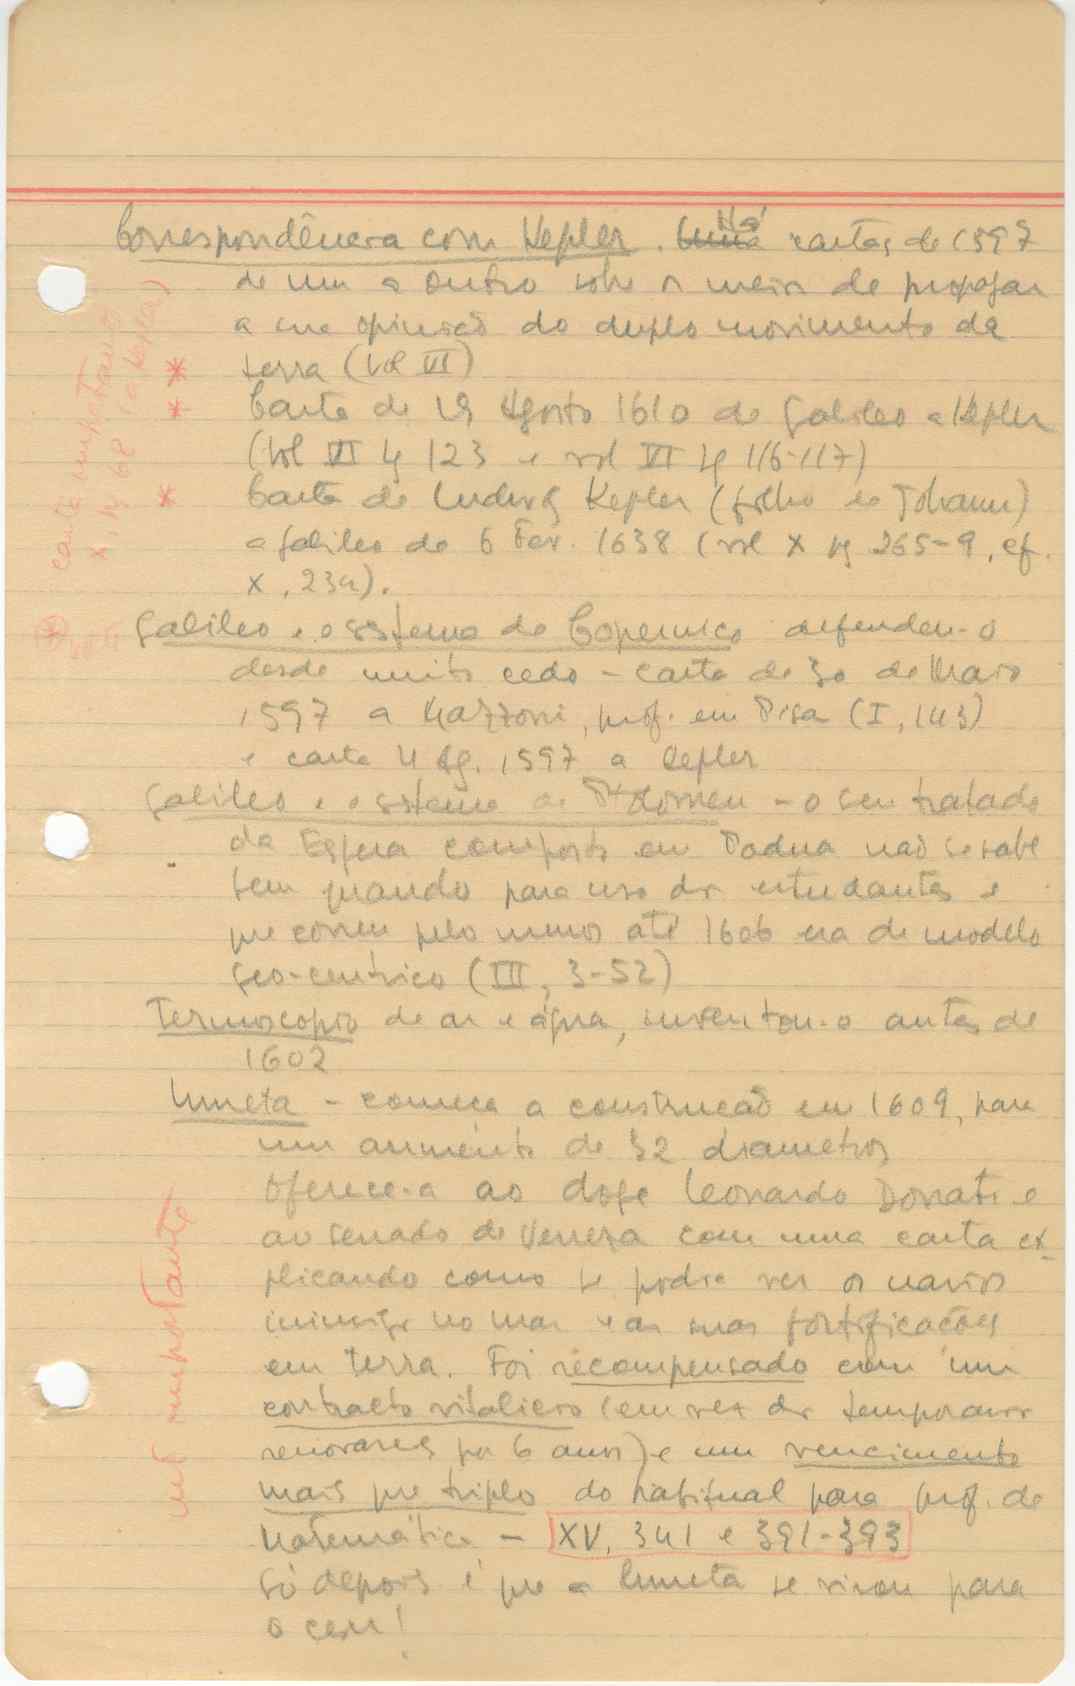 Correspondência com Kepler. Há cartas de 1597
de um a outro sobre o meio de propagar
a sua opinião do duplo movimento da
terra (vol VI)
Carta de 19 Agosto 1610 de Galileo a Kepler
(vol VI pg 123 e vol VI pg 116-117)
Carta de Ludwig Kepler (filho de Johann)
a Galileo de 6 Fev. 1638 (vol X pg 265-9, cf.
X, 234).
carta importante
X, pg 68 (a Kepler)
Galileo e o sistema de Copernico defendeu-o
desde muito cedo - carta de 30 de Maio
1597 a Mazzoni, prof. em Pisa (I, 143)
e carta 4 Ag. 1597 a Kepler
Galileo e o sistema de Ptolomeu - o seu tratado
da Esfera composto em Padua não se sabe
bem quando para uso dos estudantes e
que correu pelo menos até 1606 era de modelo
geo-centrico (III, 3-52)
Termoscopio de ar e água, inventou-o antes de
1602
Luneta - começa a construcção em 1609, para
um aumento de 32 diametros
Oferece-a ao doge Leonardo Donati e
ao senado de Veneza com uma carta ex-
plicando como se podia ver os navios
inimigos no mar e as suas fortificações
em terra. Foi recompensado com um
contracto vitalicio (em vez dos temporarios
renovaveis por 6 anos) e um vencimento
mais que triplo do habitual para prof. de
Matemática - XV, 341 e 391-393
Só depois é que a luneta se virou para
o ceu!
mt importante